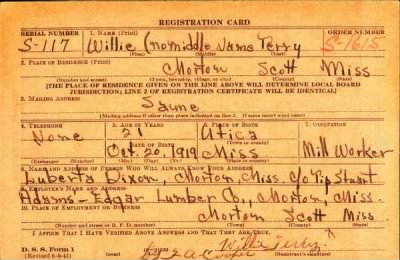 REGISTRATION CARD
SERIAL NUMBER 1. NAME (Print) ORDER NUMBER
S-117 Willie (no middle name Terry S-1615
2. PLACE OF RESIDENCE (Print)
Morton Scott Miss
(Number and street) (Town, township, village, or city) (County) (State)
[THE PLACE OF RESIDENCE GIVEN ON THE LINE ABOVE WILL DETERMINE LOCAL BOARD
JURISDICTION; LINE 2 OF REGISTRATION CERTIFICATE WILL BE IDENTICAL]
3. MAILING ADDRESS
Same
[Mailing address if other than place indicated on line 2. If same insert word same]
4. TELEPHONE 5. AGE IN YEARS 6. PLACE OF BIRTH 7. OCCUPATION
None 21 Utica
DATE OF BIRTH (Town or county)
Oct. 20, 1919 Miss Mill Worker
(Exchange) (Number) (Mo.) (Day) (Yr.) (State or country)
8. NAME AND ADDRESS OF PERSON WHO WILL ALWAYS KNOW YOUR ADDRESS
Lubert Dixon, Morton, Miss. c/o Tip Stuart
9. EMPLOYER'S NAME AND ADDRESS
Adams-Edgar Lumber Co., Morton, Miss.
10. PLACE OF EMPLOYMENT OR BUSINESS
Morton Scott Miss
(Number and street or R. F. D. number) (Town) (County) (State)
I AFFIRM THAT I HAVE VERIFIED ABOVE ANSWERS AND THAT THEY ARE TRUE.
D. S. S. Form 1 Willie Terry
(Revised 6-9-41) by